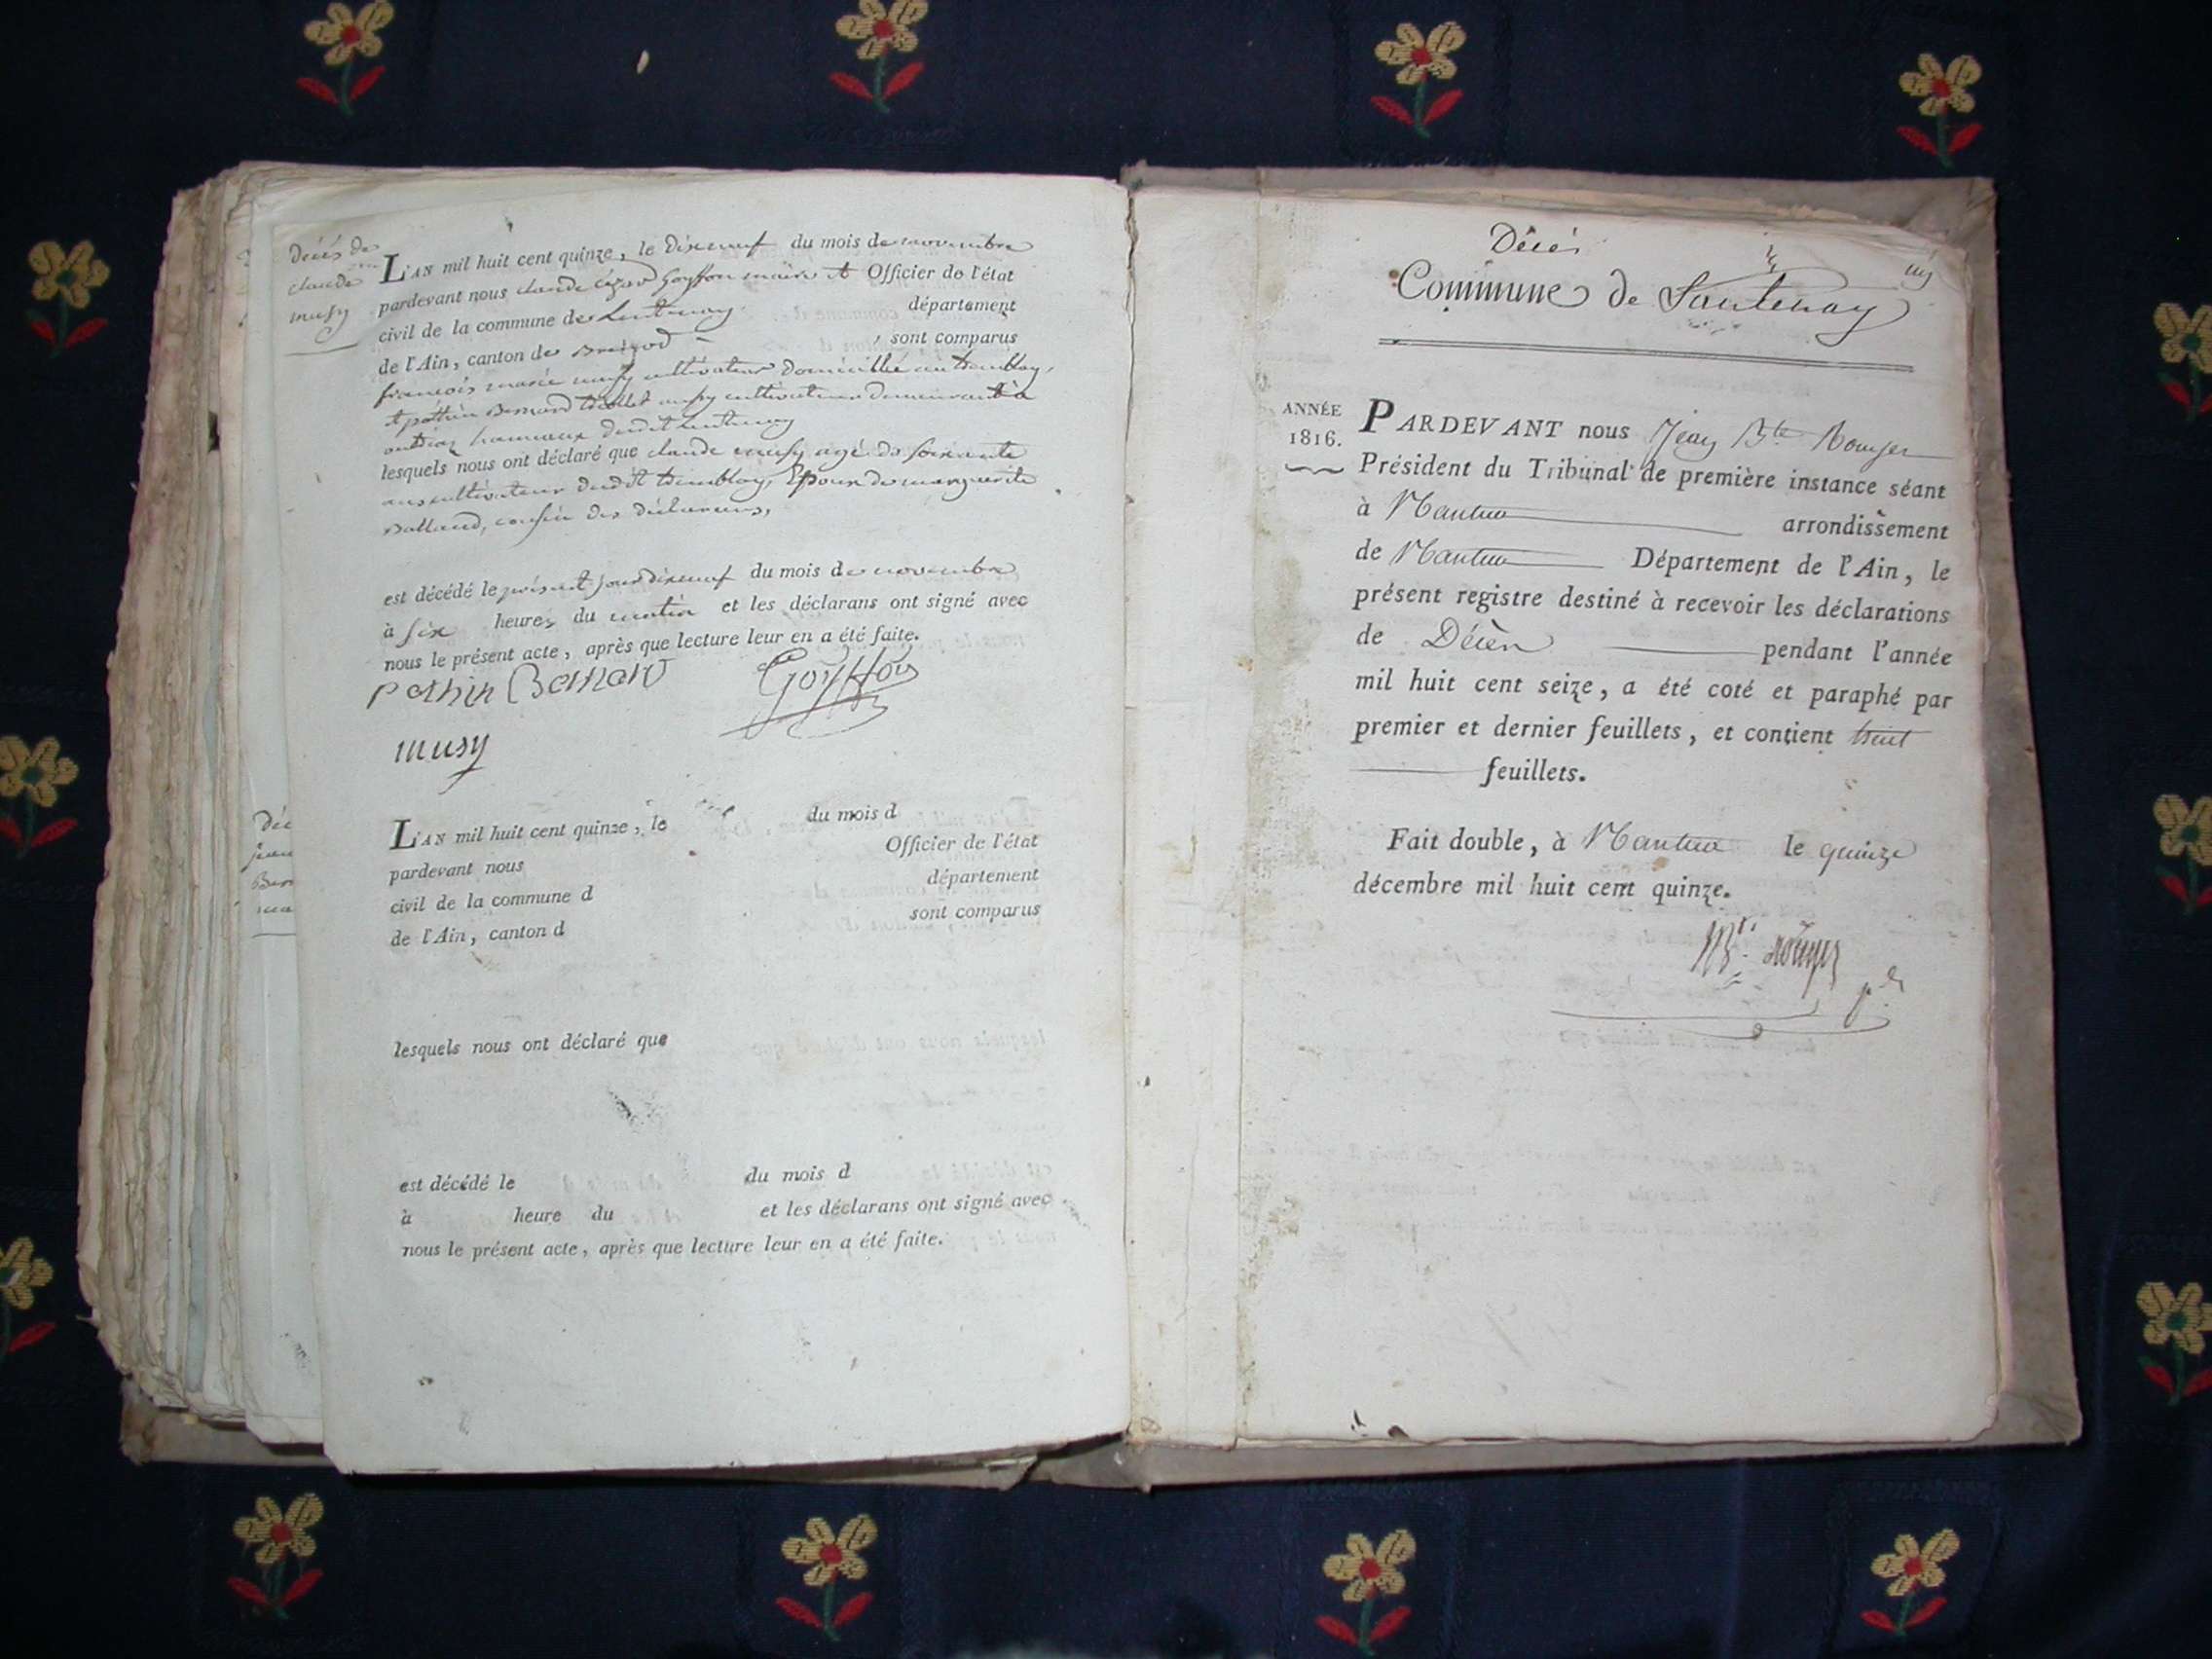 décès de
claude
musy
L'AN mil huit cent quinze, le dixneuf du mois de novembre
pardevant nous claude Cézar Goyffon maire et Officier de l'état
civil de la commune de Lantenay département
de l'Ain, canton de Brénod , sont comparus
françois marie musy cultivateur domicilié au tremblay,
et pothin Bernard musy cultivateur demeurant à
hameaux dudit Lantenay
lesquels nous ont déclaré que claude musy agé de soixante
ans cultivateur dudit tremblay, Epoux de marguerite
Balland, cousin des déclarans,
est décédé le présent jour dixneuf du mois de novembre
à six heures du matin et les déclarans ont signé avec
nous le présent acte, après que lecture leur en a été faite.
Pothin Bernard Goÿffon
musy
L'AN mil huit cent quinze, le du mois d
pardevant nous Officier de l'état
civil de la commune d département
de l'Ain, canton d sont comparus
lesquels nous ont déclaré que
est décédé le du mois d
à heure du et les déclarans ont signé avec
nous le présent acte, après que lecture leur en a été faite.
Déc
jean
Ber
ma
Décès
Commune de Lantenay
ANNÉE
1816.
PARDEVANT nous Jean Bte Rouyer
Président du Tribunal de première instance séant
à Nantua arrondissement
de Nantua Département de l'Ain, le
présent registre destiné à recevoir les déclarations
de Décès pendant l'année
mil huit cent seize, a été coté et paraphé par
premier et dernier feuillets, et contient huit
feuillets.
Fait double, à Nantua le quinze
décembre mil huit cent quinze.
Rouyer
pdt